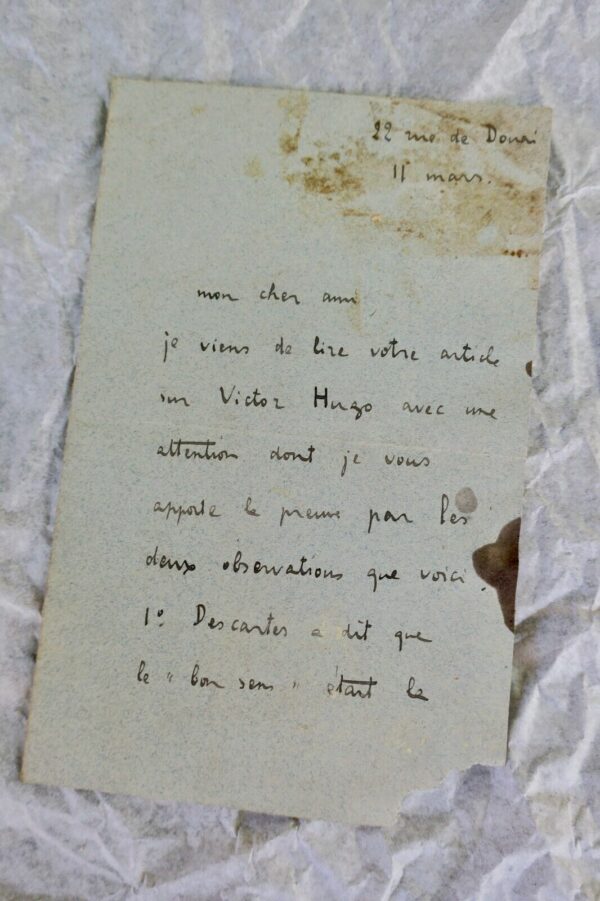 22 rue de Douai
11 mars.
mon cher ami,
je viens de lire votre article
sur Victor Hugo avec une
attention dont je vous
apporte la preuve par les
deux observations que voici :
1º. Descartes a dit que
le "bon sens" était la